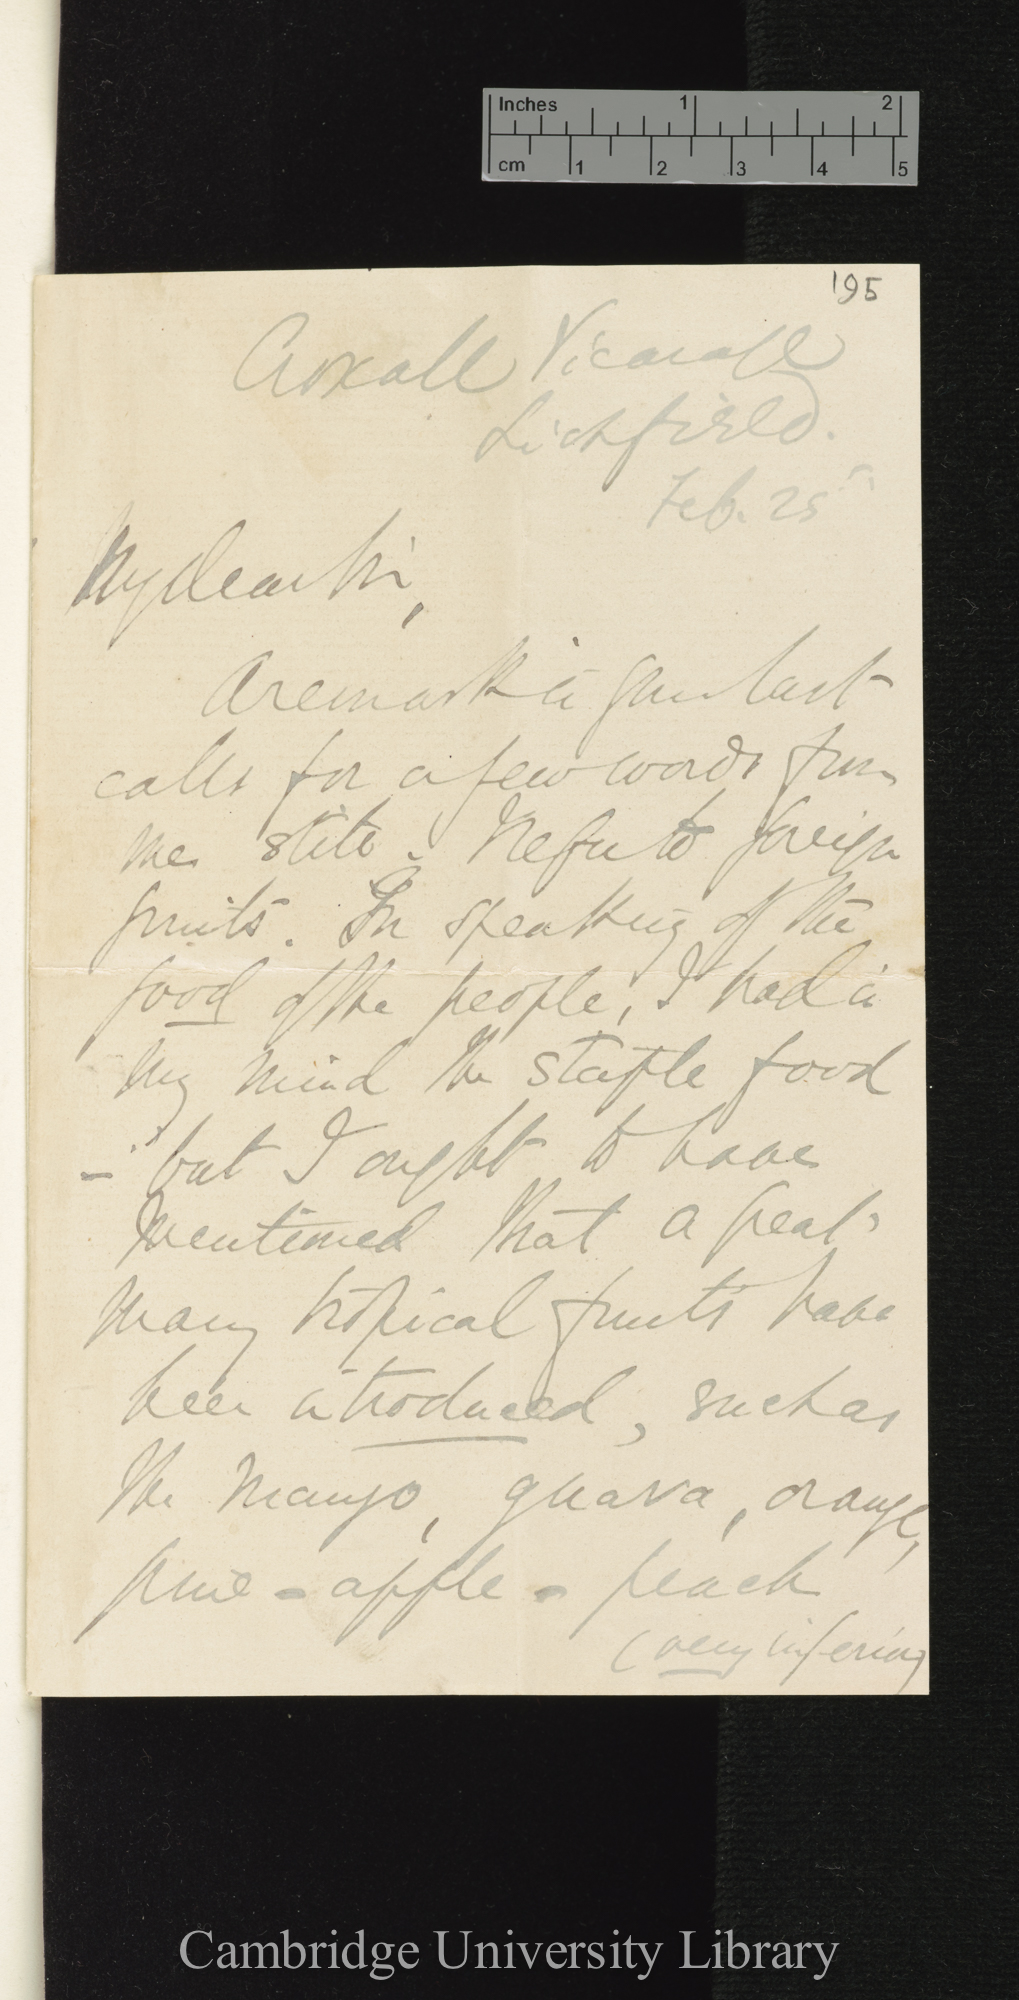 Inches 1 2
cm 1 2 3 4 5
195
Croxall Vicarage
Lichfield.
Feb. 25th
My dear Sir,
A remark in your last
calls for a few words from
me
I refer to foreign
fruits. In speaking of the
food of the people, I had in
my mind the staple food
- but I ought to have
mentioned that a great
many tropical fruits have
been introduced, such as
the mango, guava, orange,
pine-apple - peach
(very inferior)
Cambridge University Library